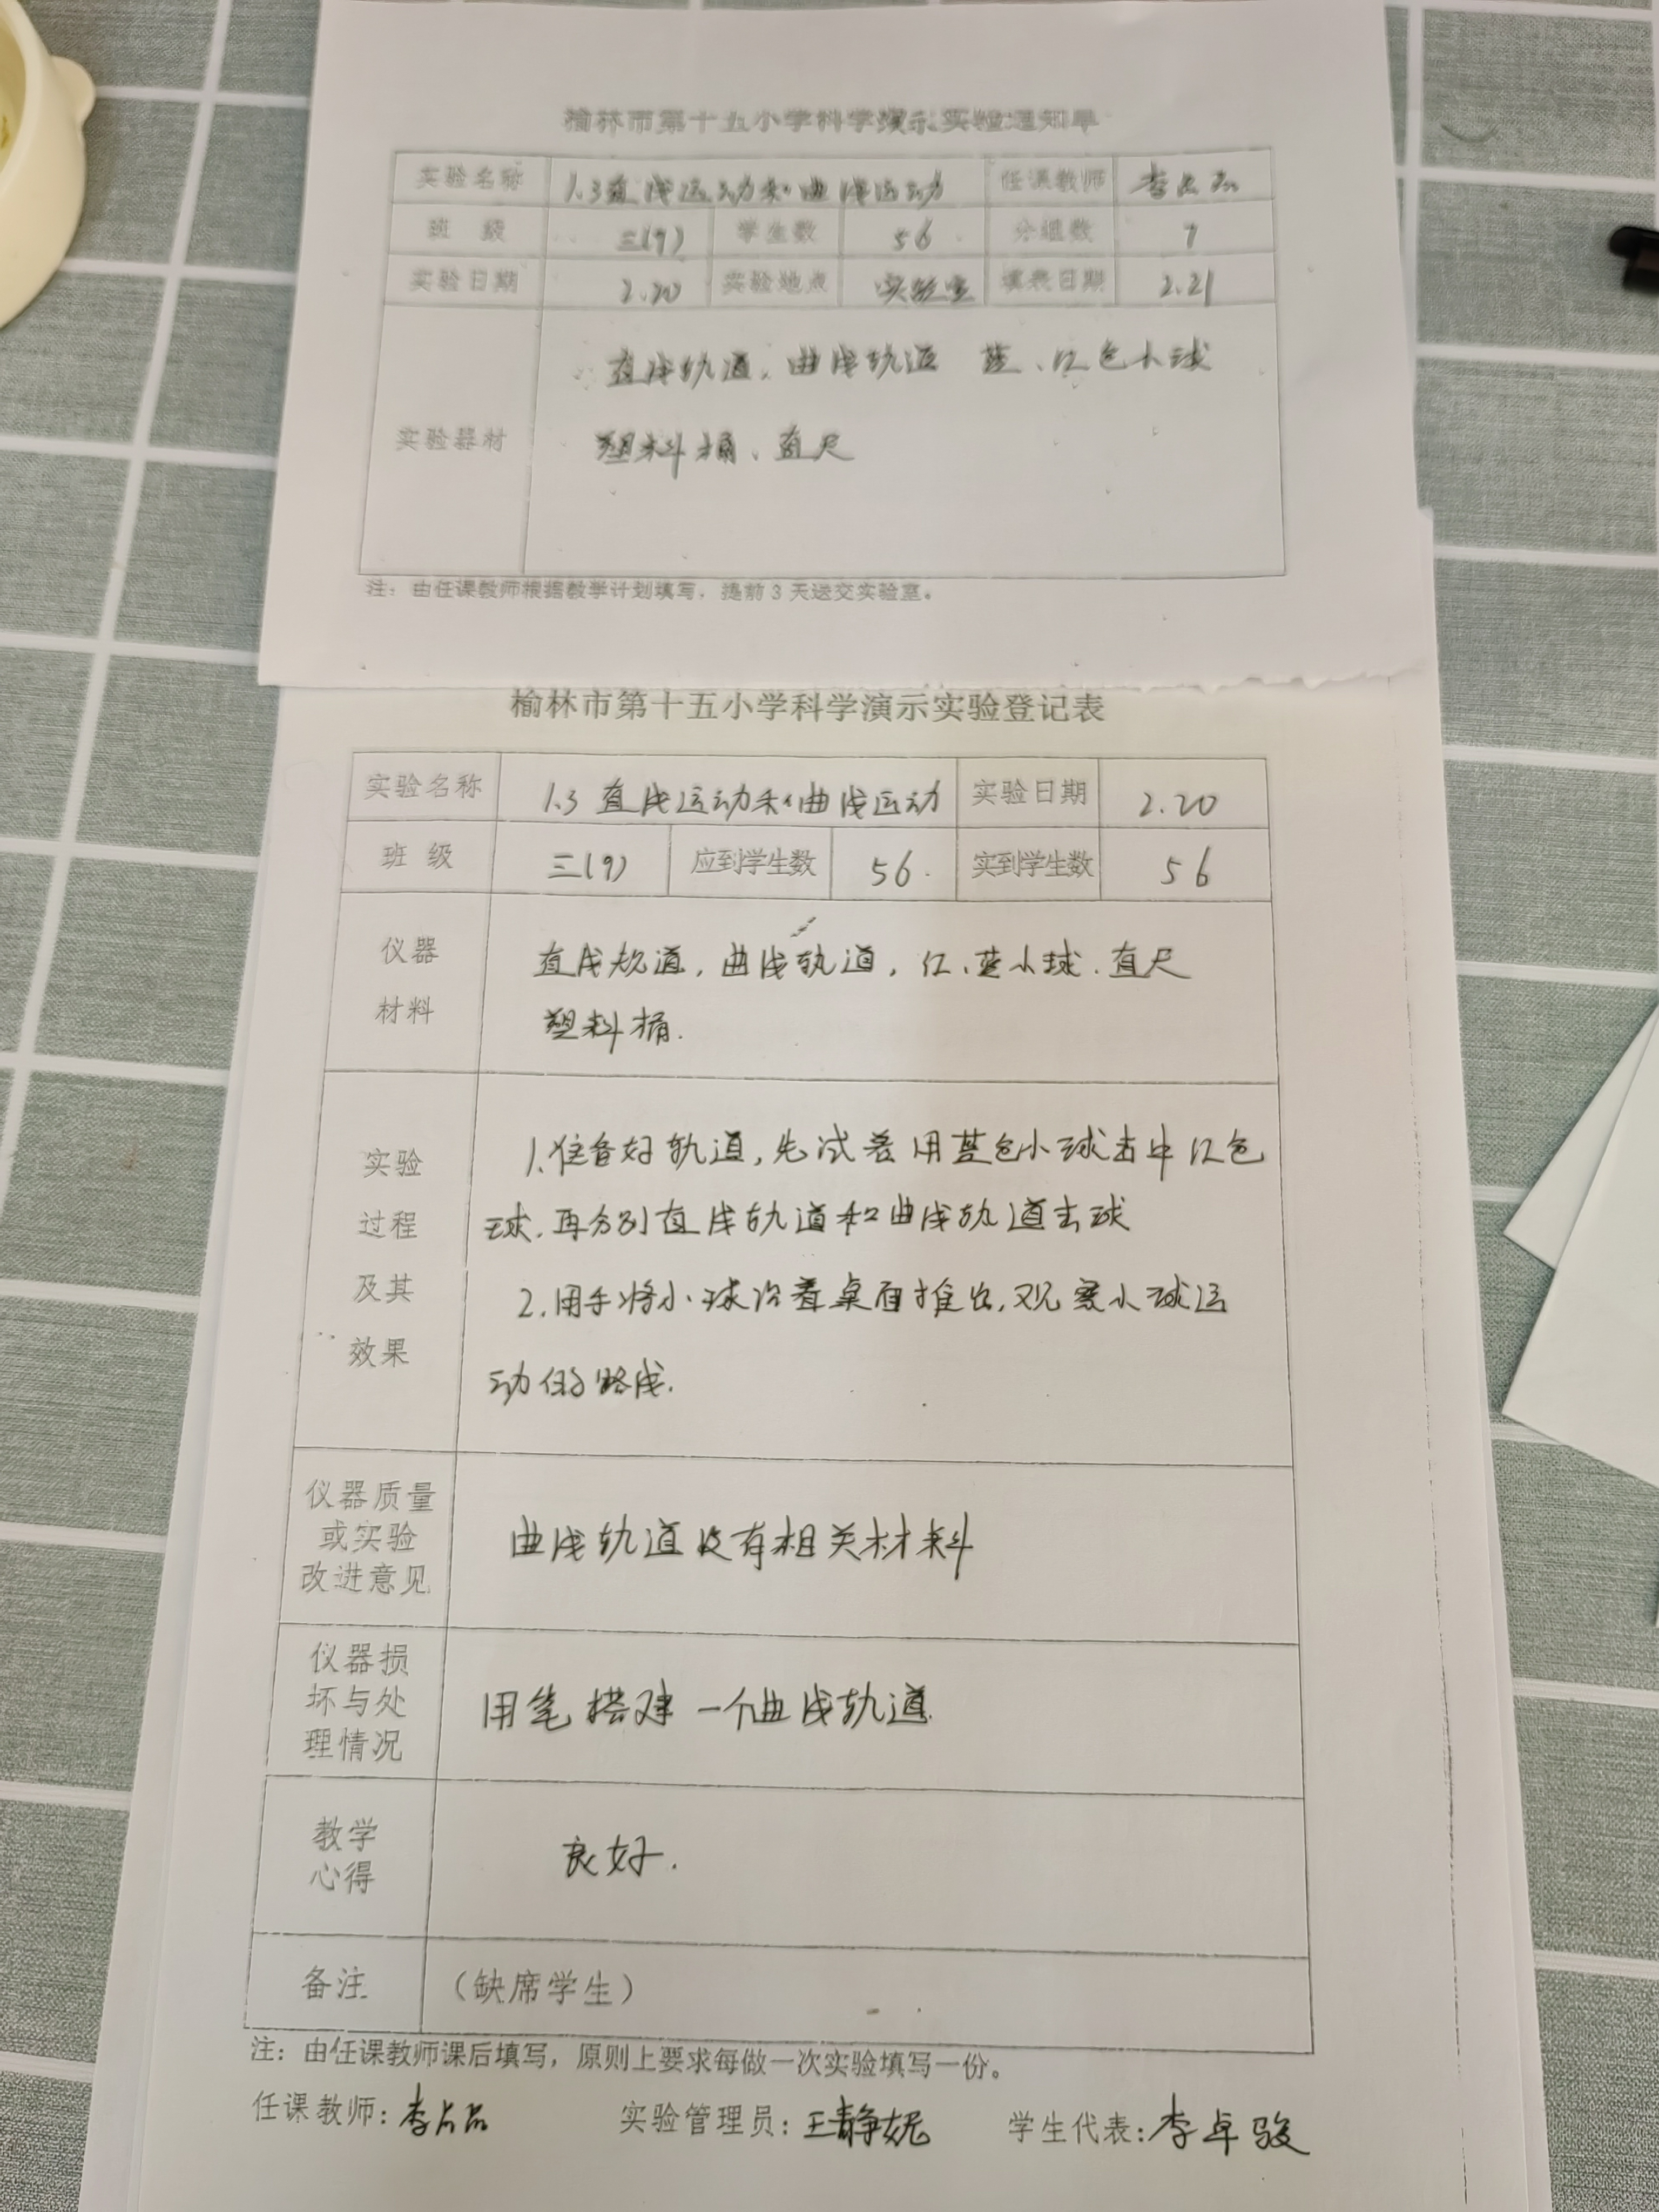 榆林市第十五小学科学演示实验通知单
实验名称 1.3直线运动和曲线运动 任课教师
班 级 三(9) 学生数 56 分组数 7
实验日期 2.20 实验地点 实验室 填表日期 2.21
直线轨道、曲线轨道 蓝、红色小球
实验器材 塑料桶、直尺
注：由任课教师根据教学计划填写，提前3天送交实验室。
榆林市第十五小学科学演示实验登记表
实验名称 1.3 直线运动和曲线运动 实验日期 2.20
班 级 三(9) 应到学生数 56. 实到学生数 56
仪器 直线轨道，曲线轨道，红、蓝小球、直尺
材料 塑料桶.
实验 1.准备好轨道，先试着用蓝色小球击中红色
过程 球.再分别直线轨道和曲线轨道击球
及其 2.用手将小球沿着桌面推出，观察小球运
效果 动的路线.
仪器质量
或实验 曲线轨道没有相关材料
改进意见
仪器损
坏与处 用笔搭建一个曲线轨道.
理情况
教学 良好.
心得
备注 （缺席学生）
注：由任课教师课后填写，原则上要求每做一次实验填写一份。
任课教师: 实验管理员: 王静妮 学生代表: 李卓骏